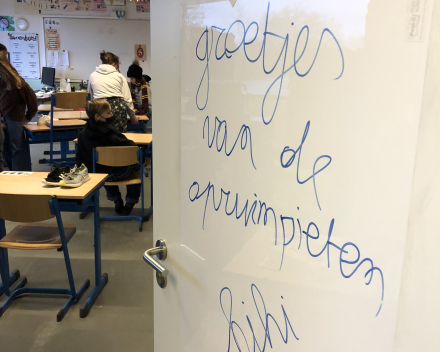 groetjes
van de
opruimpieten
hihi